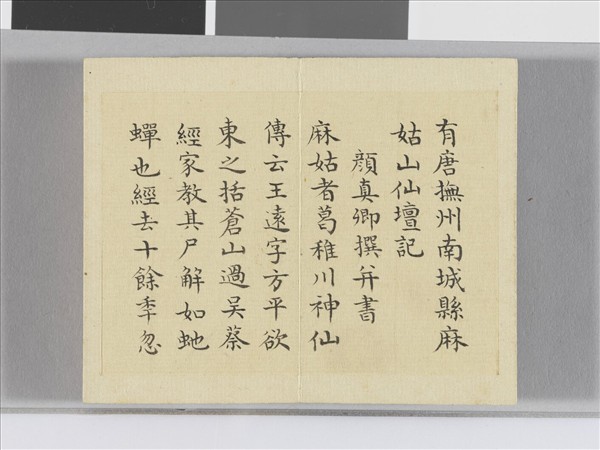 有唐撫州南城縣麻
姑山仙壇記
顏真卿撰幷書
麻姑者葛稚川神仙
傳云王遠字方平欲
東之括蒼山過吴蔡
經家教其尸解如虵
蟬也經去十餘秊忽